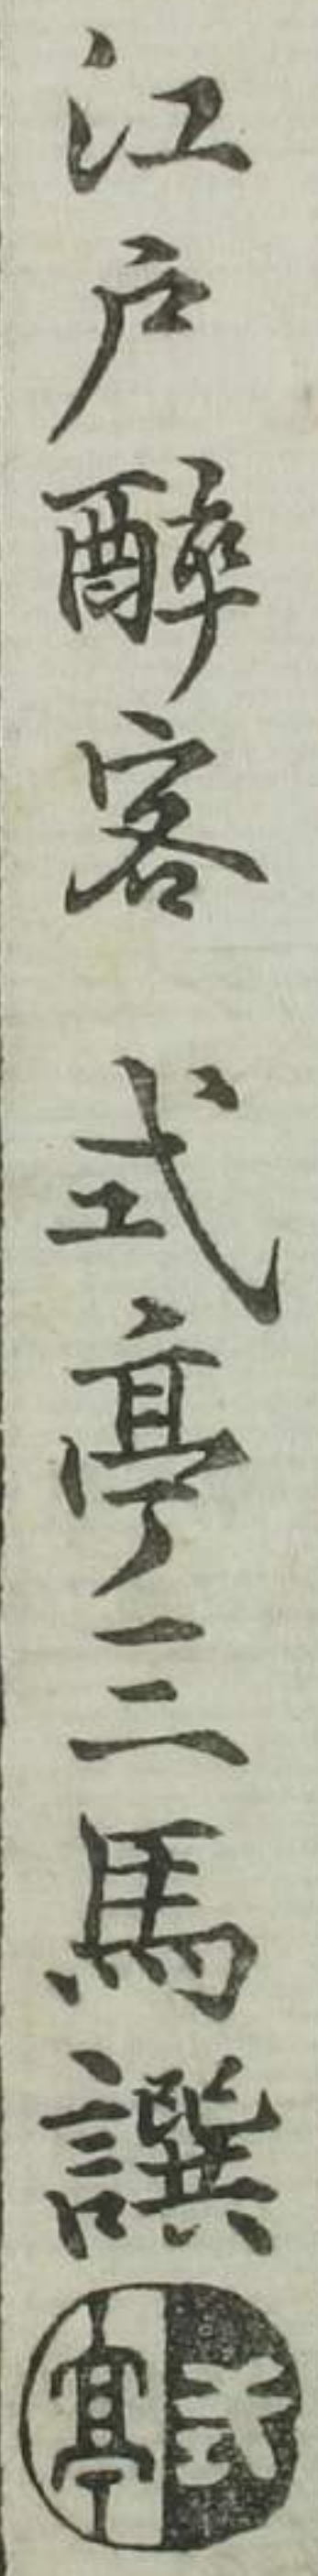 江戸醉客 式亭三馬譔
式亭